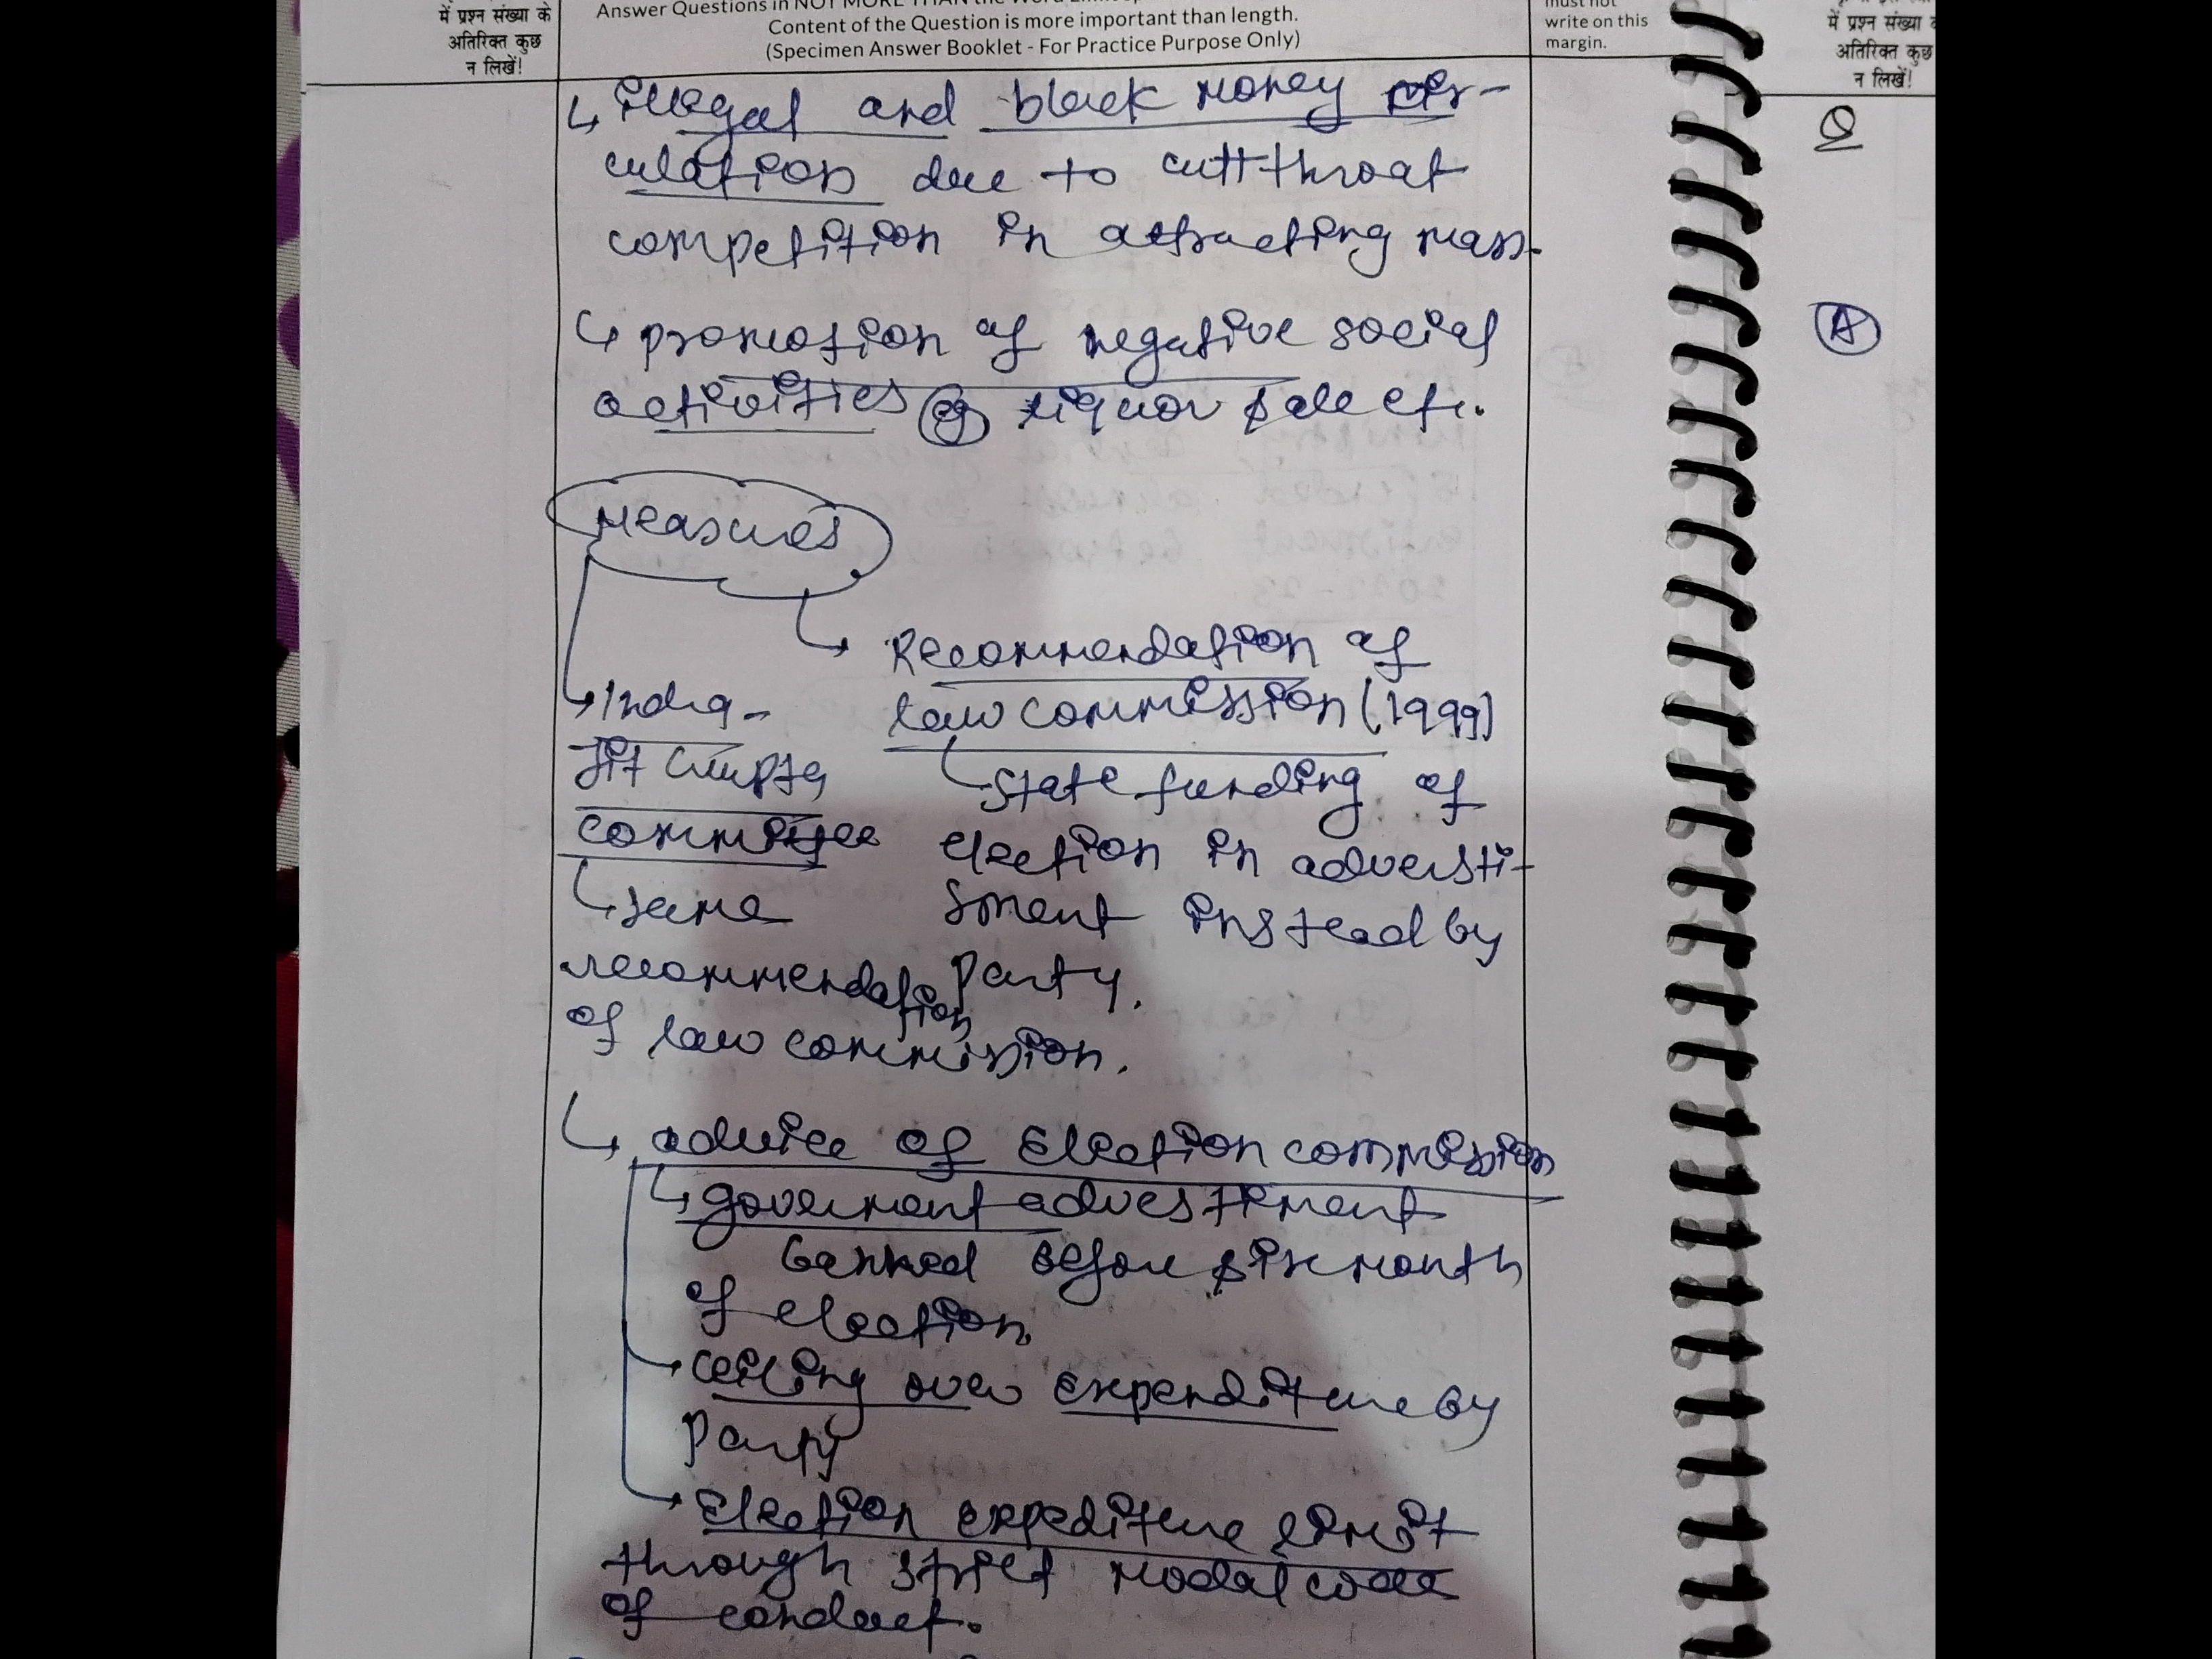 में प्रश्न संख्या के
अतिरिक्त कुछ
न लिखें!
Answer Questions in NOT MORE THAN the Word
Content of the Question is more important than length.
(Specimen Answer Booklet - For Practice Purpose Only)
must not
write on this
margin.
में प्रश्न संख्या
अतिरिक्त कुछ
न लिखें!
Q
A
↳ illegal and black money cir-
culation due to cuttthroat
competition in attracting mass.
↳ promotion of negative social
activities eg liquor sale etc.
Measures
↳ Recommendation of
law commission (1999)
↳ State funding of
election in adversti-
sment instead by
party.
↳ Indra-
Jit Gupta
committee
↳ same
recommendation
of law commission.
↳ advice of Election commission
↳ government advestiment
banned before six month
of election
→ ceiling over expenditure by
party
→ Election expediture limit
through strict modal code
of conduct.